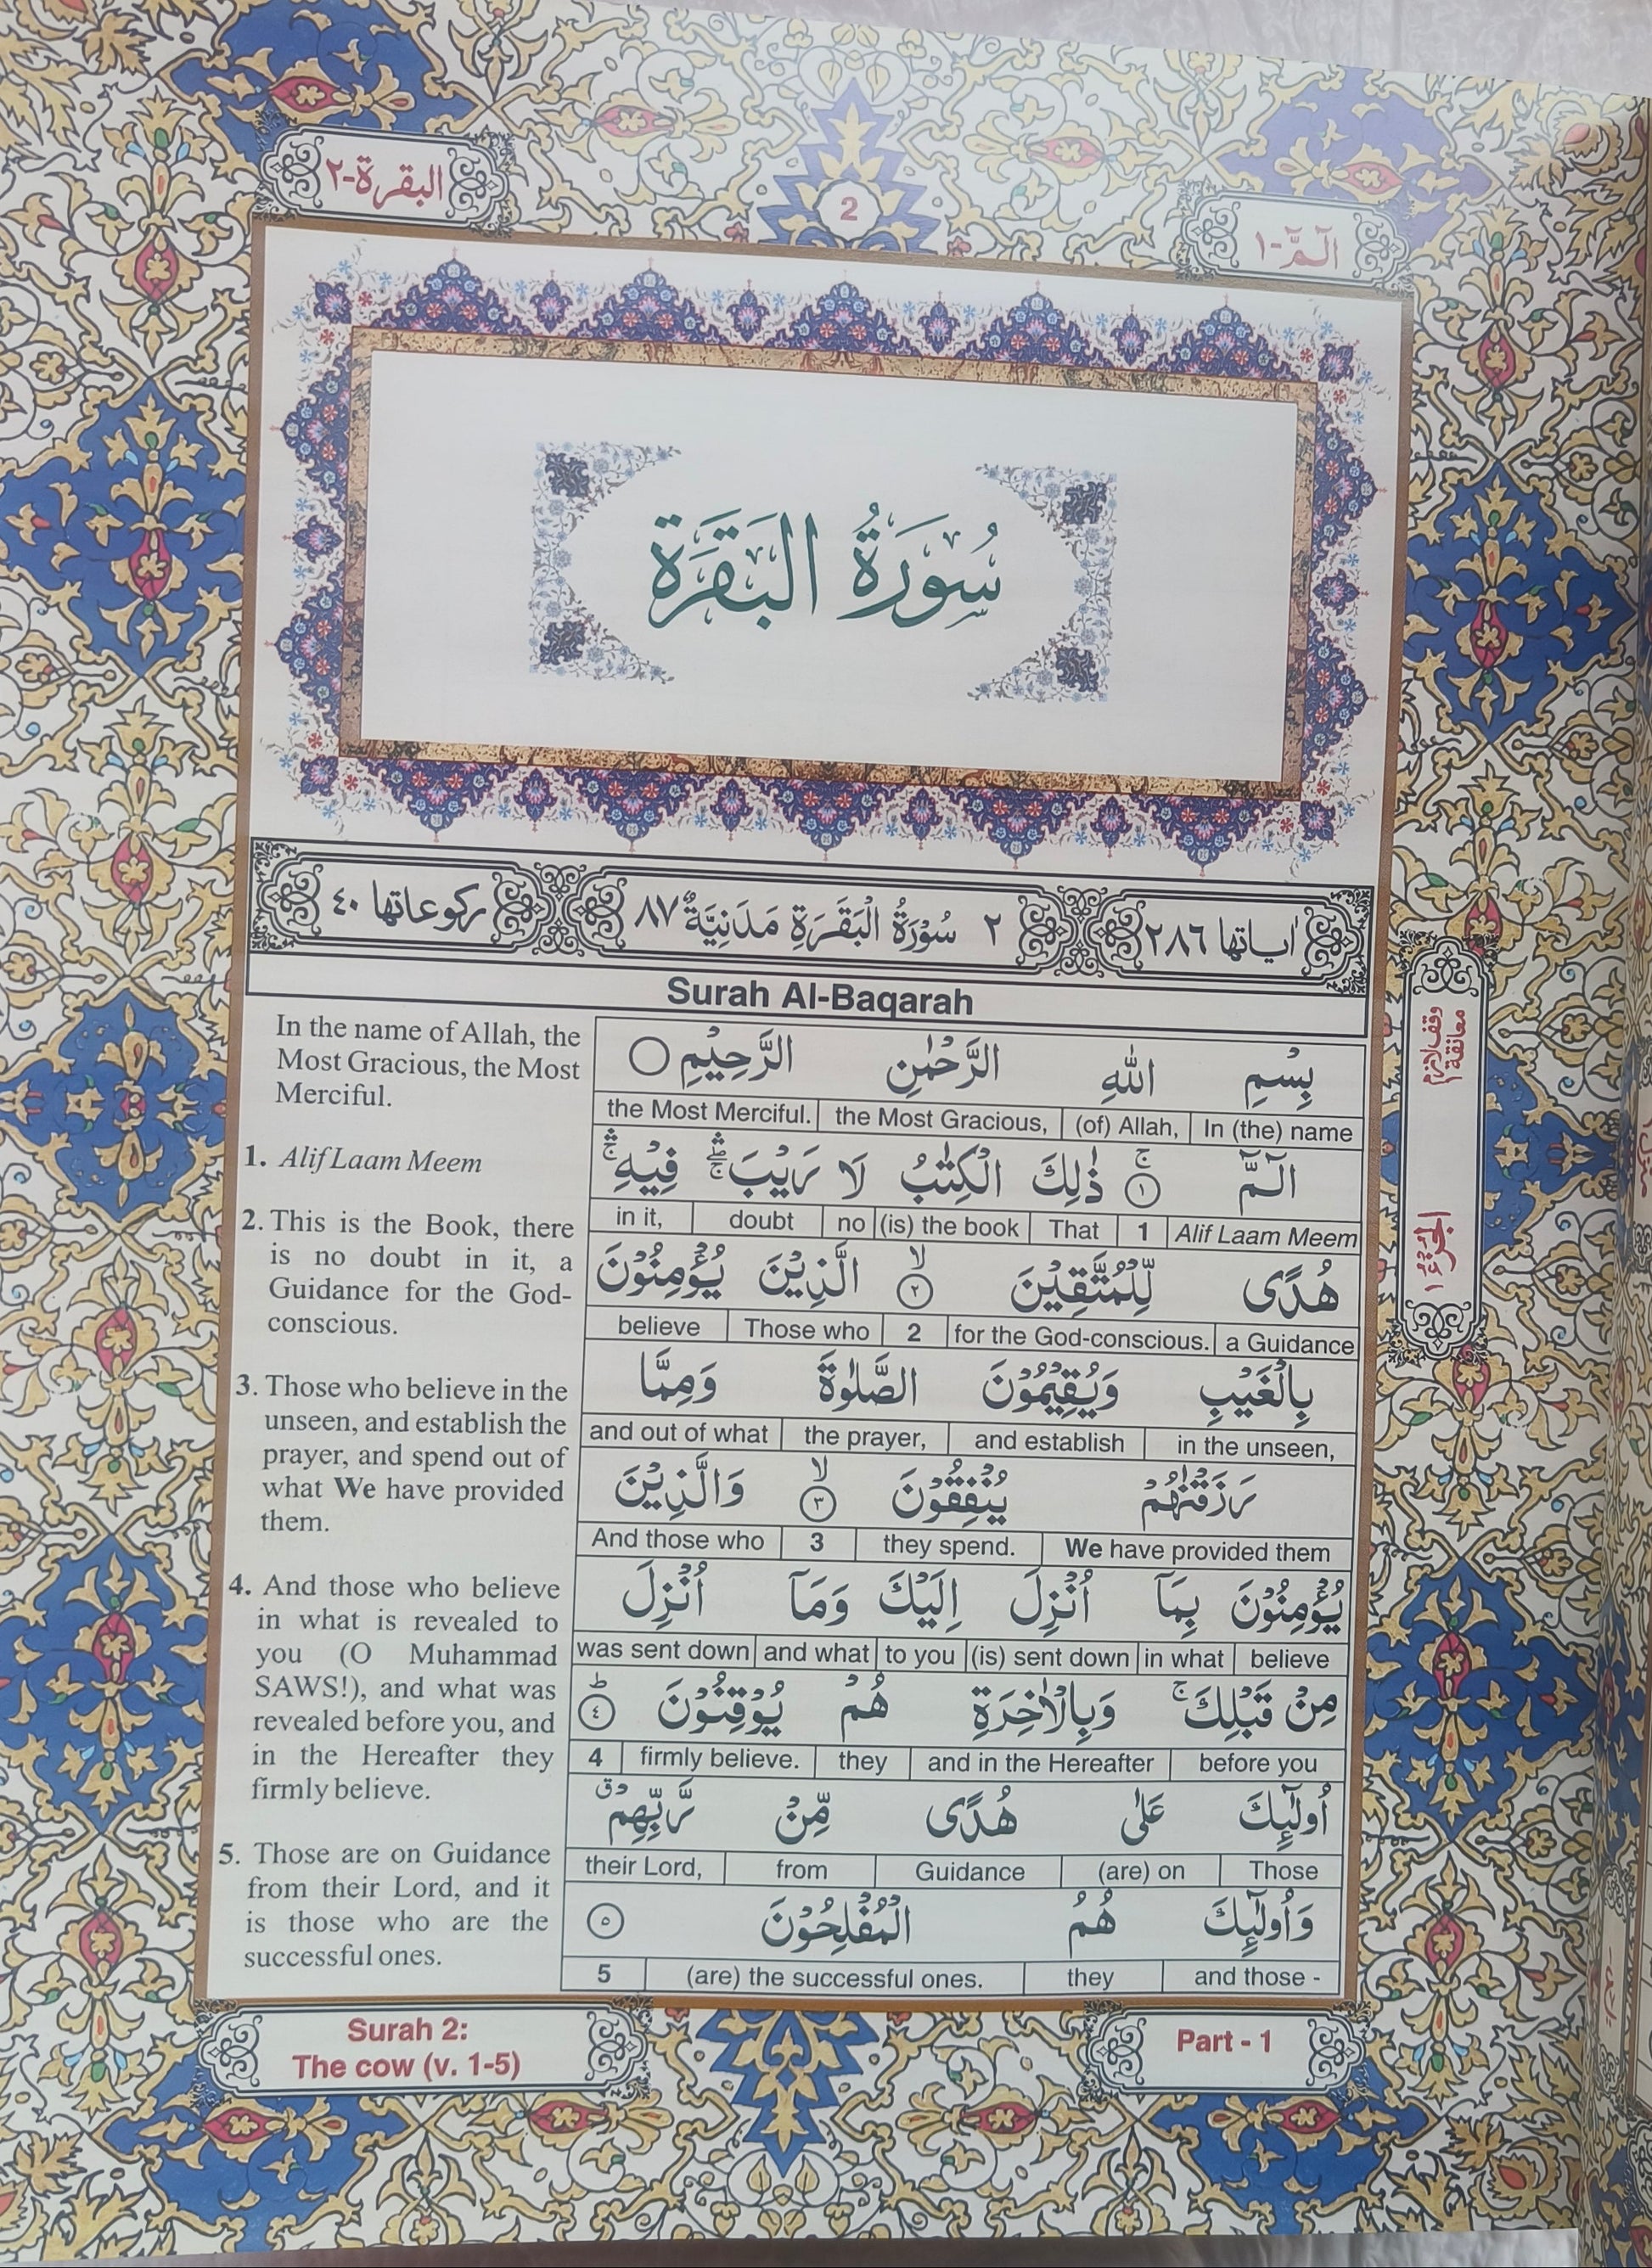 البقرة-٢
2
الٓمّٓ-١
سُورَةُ البَقَرَة
اٰیاتها ٢٨٦
٢ سُوْرَةُ الْبَقَرَةِ مَدَنِيَّةٌ ٨٧
ركوعاتها ٤٠
Surah Al-Baqarah
In the name of Allah, the
Most Gracious, the Most
Merciful.
1. Alif Laam Meem
2. This is the Book, there
is no doubt in it, a
Guidance for the God-
conscious.
3. Those who believe in the
unseen, and establish the
prayer, and spend out of
what We have provided
them.
4. And those who believe
in what is revealed to
you (O Muhammad
SAWS!), and what was
revealed before you, and
in the Hereafter they
firmly believe.
5. Those are on Guidance
from their Lord, and it
is those who are the
successful ones.
بِسْمِ اللّٰهِ الرَّحْمٰنِ الرَّحِيْمِ
the Most Merciful. the Most Gracious, (of) Allah, In (the) name
الٓمّٓ ۚ ١ ذٰلِكَ الْكِتٰبُ لَا رَيْبَ ۛۚ فِيْهِ ۛۚ
in it, doubt no (is) the book That 1 Alif Laam Meem
هُدًى لِّلْمُتَّقِيْنَ ۙ ٢ الَّذِيْنَ يُؤْمِنُوْنَ
believe Those who 2 for the God-conscious. a Guidance
بِالْغَيْبِ وَيُقِيْمُوْنَ الصَّلٰوةَ وَمِمَّا
and out of what the prayer, and establish in the unseen,
رَزَقْنٰهُمْ يُنْفِقُوْنَ ۙ ٣ وَالَّذِيْنَ
And those who 3 they spend. We have provided them
يُؤْمِنُوْنَ بِمَآ اُنْزِلَ اِلَيْكَ وَمَآ اُنْزِلَ
was sent down and what to you (is) sent down in what believe
مِنْ قَبْلِكَ ۚ وَبِالْاٰخِرَةِ هُمْ يُوْقِنُوْنَ ؕ ٤
4 firmly believe. they and in the Hereafter before you
اُولٰٓئِكَ عَلٰى هُدًى مِّنْ رَّبِّهِمْ ۗ
their Lord, from Guidance (are) on Those
وَاُولٰٓئِكَ هُمُ الْمُفْلِحُوْنَ ٥
5 (are) the successful ones. they and those -
وقف لازم
معانقة ١
الجزء ١
Surah 2:
The cow (v. 1-5)
Part - 1